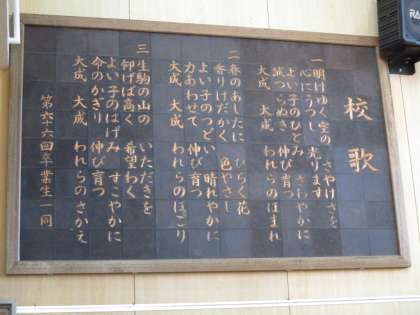 校歌
一 明けゆく空の さやけさを
心にうつし 光ります
よい子のひとみ きよらかに
誠つらぬき 伸び育つ
大成 大成 われらのほまれ
二 春のあしたに ひらく花
香りけだかく 色やさし
よい子のつどい 晴れやかに
力あわせて 伸び育つ
大成 大成 われらのほこり
三 生駒の山の いただきを
仰げば高く 希望わく
よい子のはげみ すこやかに
命のかぎり 伸び育つ
大成 大成 われらのさかえ
第六六回卒業生一同